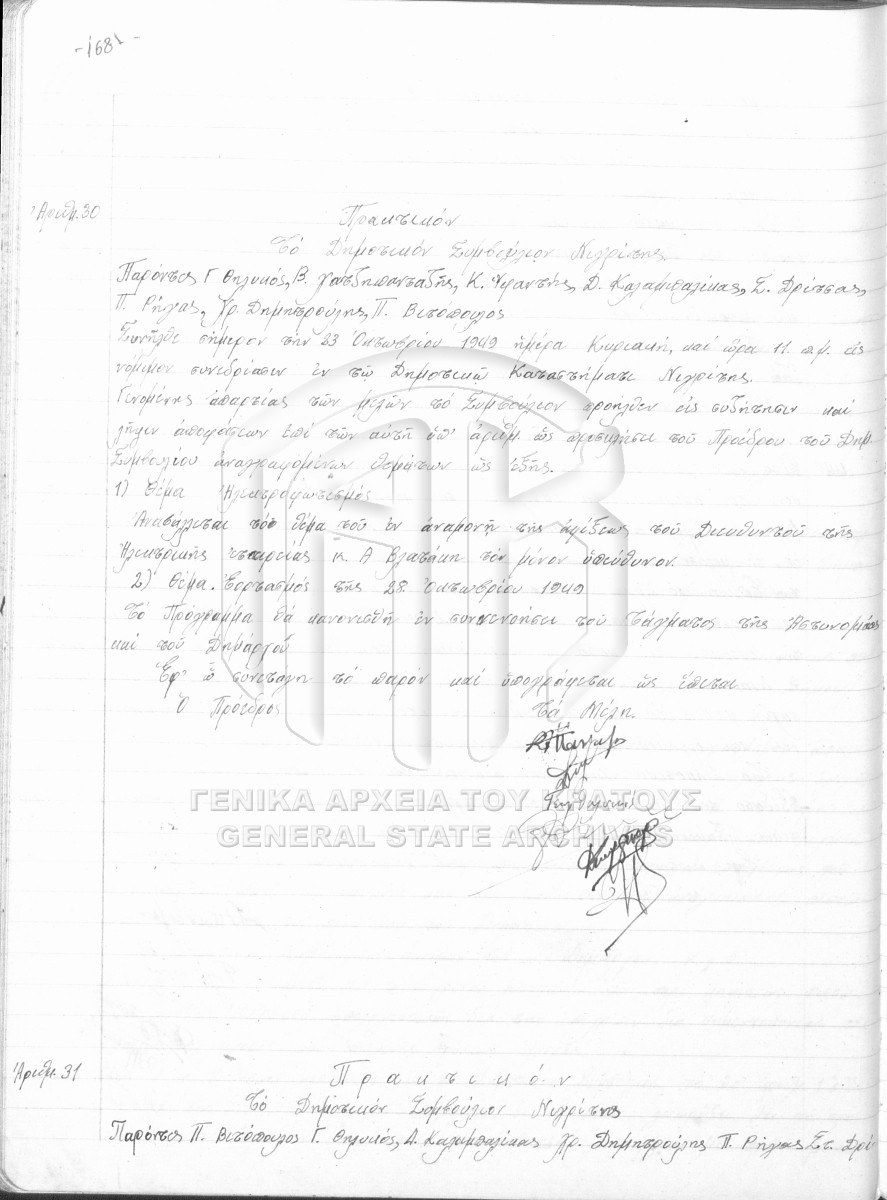 -1681-
Ἀριθμ. 30
Πρακτικόν
Τό Δημοτικόν Συμβούλιον Νιγρίτης.
Παρόντες Γ. Θηλυκός, Β. Χατζηπανταζῆς, Κ. Υφαντής, Δ. Καλαμπαλίκας, Σ. Δρίτσας,
Π. Ρήγας, Χρ. Δημητρούλης, Π. Βιτόπουλος
Συνῆλθε σήμερον τήν 23 Ὀκτωβρίου 1949 ἡμέρα Κυριακή, καί ὥρα 11 π.μ. εἰς
νόμιμον συνεδρίασιν ἐν τῷ Δημοτικῷ Καταστήματι Νιγρίτης.
Γενομένης ἀπαρτίας τῶν μελῶν τό Συμβούλιον προῆλθεν εἰς συζήτησιν καί
λῆψιν ἀποφάσεων ἐπί τῶν αὐτῇ ὑπ' ἀριθμ. ὡς προσκλήσει τοῦ Προέδρου τοῦ Δημ.
Συμβουλίου ἀναγραφομένων θεμάτων ὡς ἑξῆς.
1) Θέμα Ἠλεκτροφωτισμός
Ἀναβάλλεται τό θέμα τοῦ ἐν ἀναμονῇ τῆς ἀφίξεως τοῦ Διευθυντοῦ τῆς
Ἠλεκτρικῆς ἑταιρείας κ. Α Βλατάκη τόν μόνον ὑπεύθυνον.
2) Θέμα. Ἑορτασμός τῆς 28 Ὀκτωβρίου 1949
Τό Πρόγραμμα θά κανονισθῇ ἐν συνεννοήσει τοῦ Τάγματος τῆς Ἀστυνομίας
καί τοῦ Δημάρχου
Ἐφ' ᾧ συνετάγη τό παρόν καί ὑπογράφεται ὡς ἕπεται
Ὁ Πρόεδρος Τά Μέλη.
ΓΕΝΙΚΑ ΑΡΧΕΙΑ ΤΟΥ ΚΡΑΤΟΥΣ
GENERAL STATE ARCHIVES
Ἀριθμ. 31
Πρακτικόν
Τό Δημοτικόν Συμβούλιον Νιγρίτης
Παρόντες Π. Βιτόπουλος Γ. Θηλυκός, Δ. Καλαμπαλίκας Χρ. Δημητρούλης Π. Ρήγας Στ. Δρί